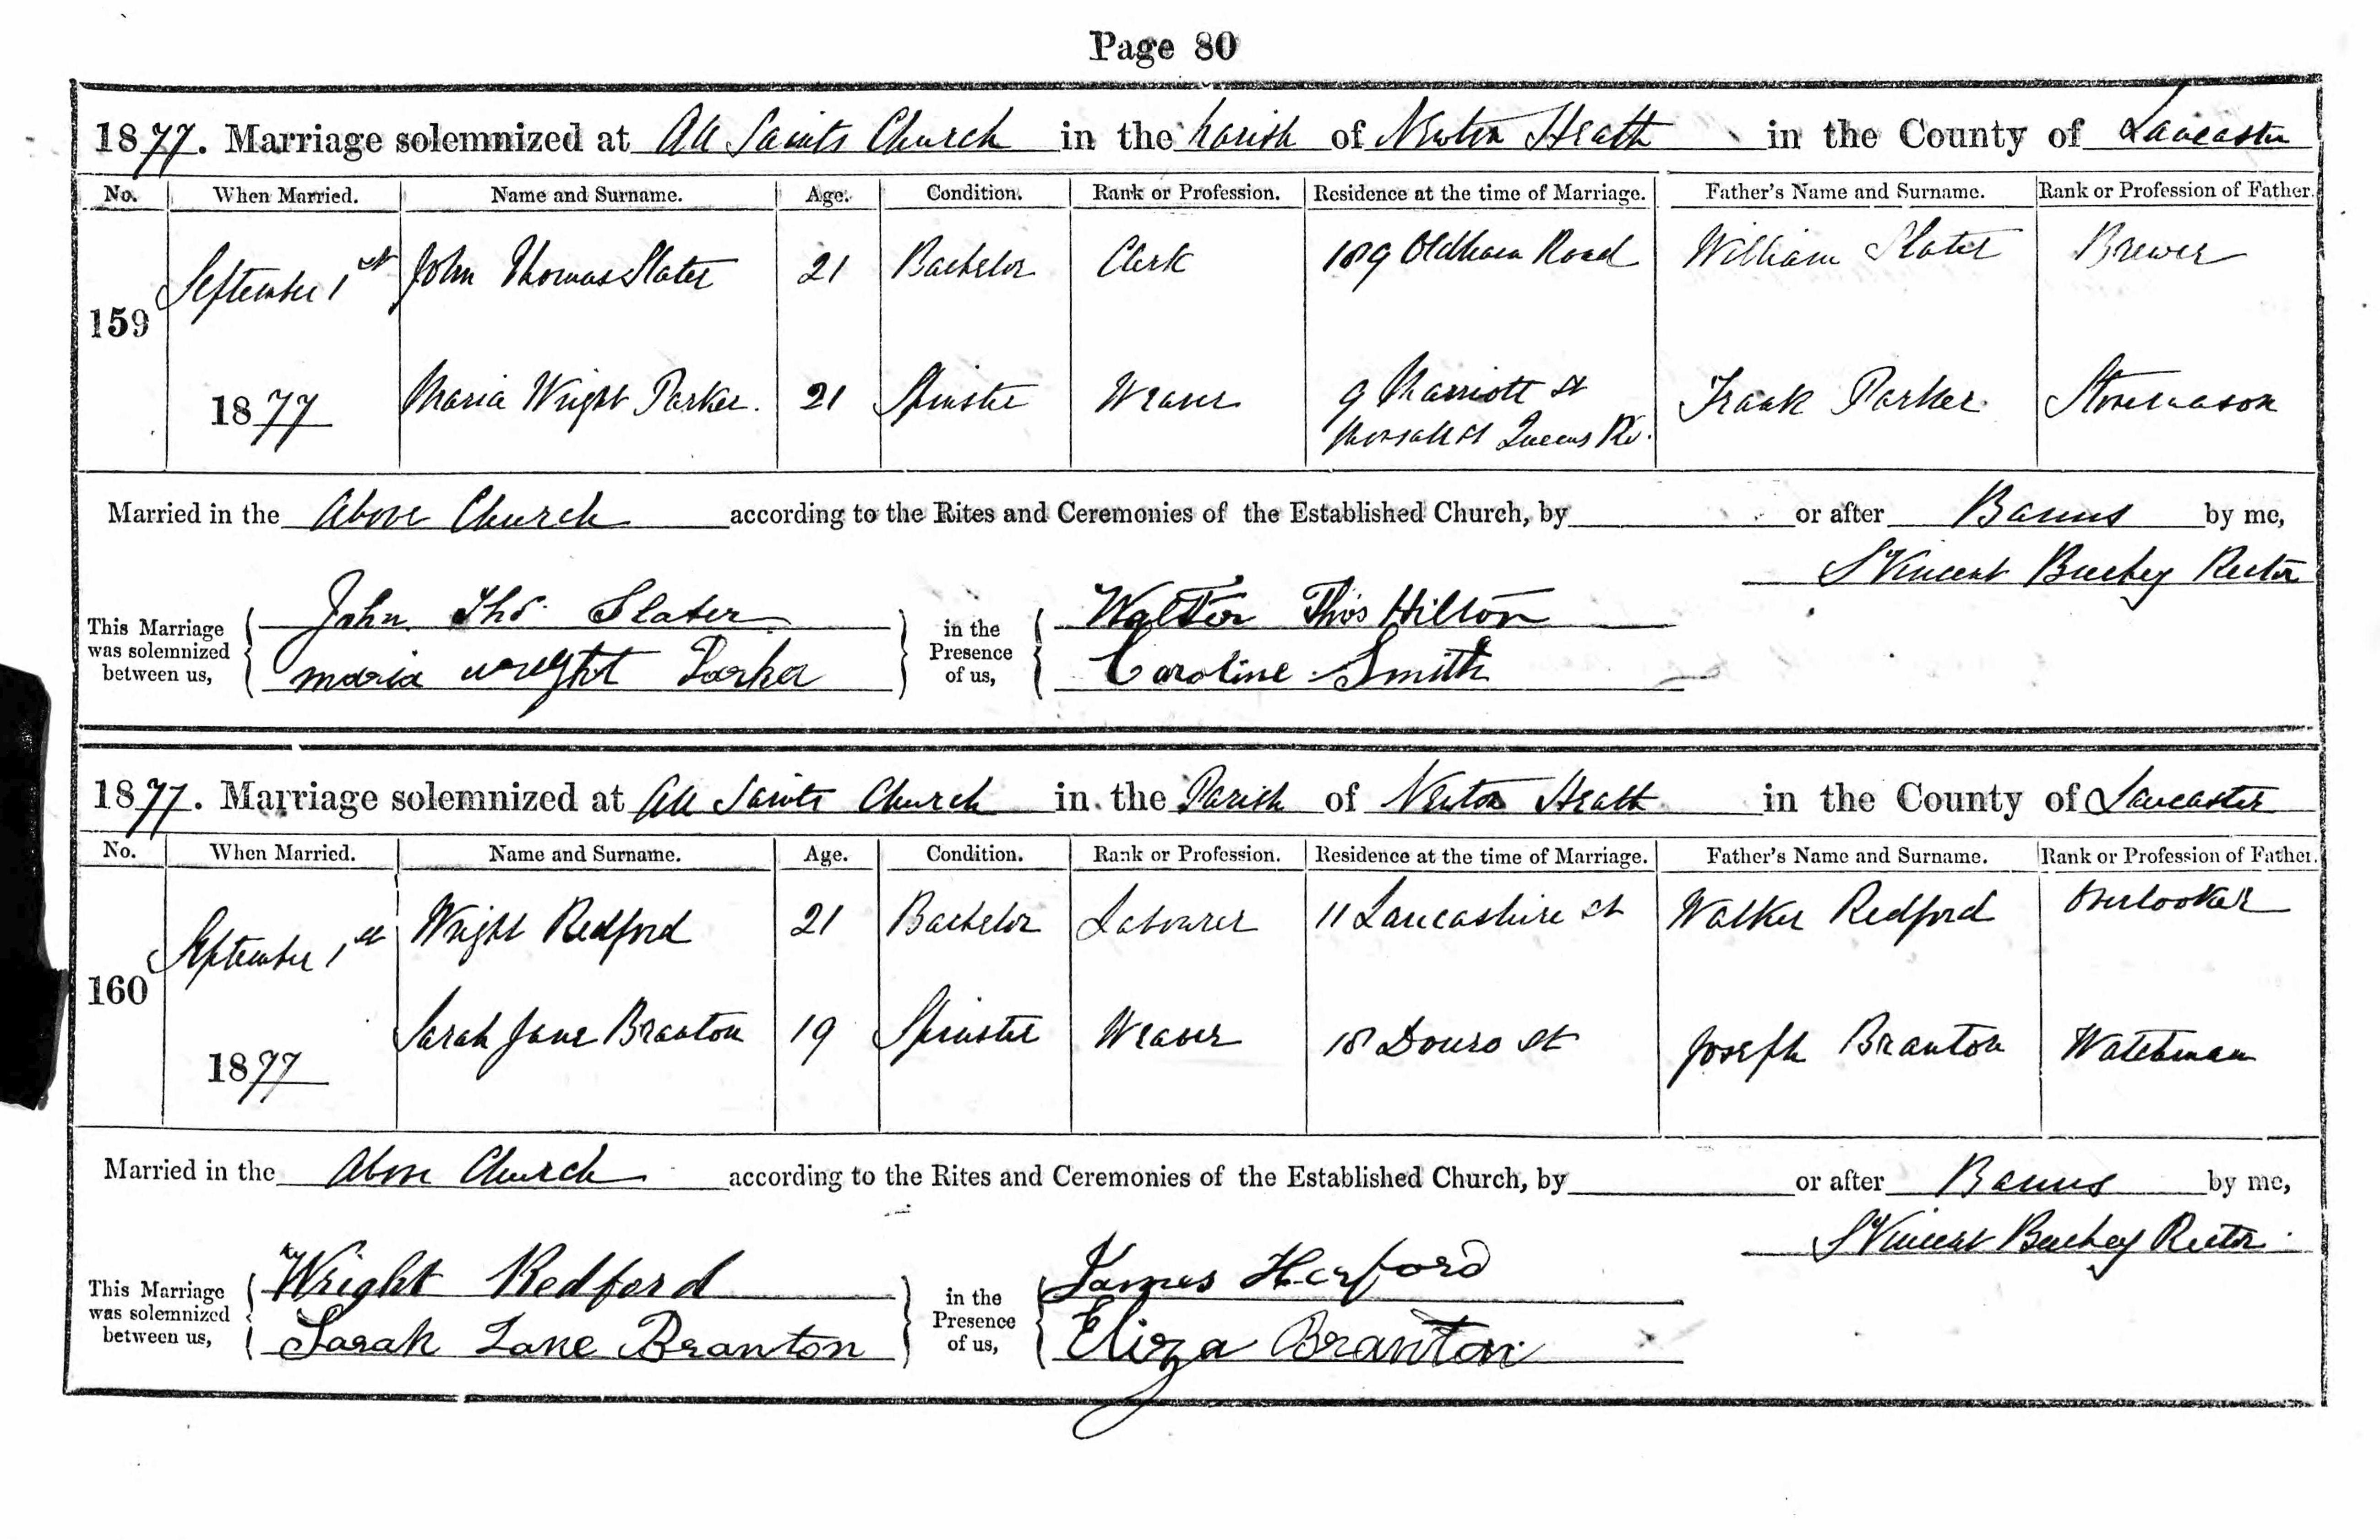 Page 80
1877. Marriage solemnized at All Saints Church in the Parish of Newton Heath in the County of Lancaster
No. When Married. Name and Surname. Age. Condition. Rank or Profession. Residence at the time of Marriage. Father's Name and Surname. Rank or Profession of Father.
159 September 1st John Thomas Slater 21 Bachelor Clerk 189 Oldham Road William Slater Brewer
1877 Maria Wright Parker. 21 Spinster Weaver 9 Marriott St Frank Parker Stonemason
St Queens Rd.
Married in the Above Church according to the Rites and Ceremonies of the Established Church, by or after Banns by me,
St Vincent Beechey Rector
This Marriage was solemnized between us, John Thos. Slater in the Presence of us, Walter Thos Hilton
maria wright Parker Caroline Smith
1877. Marriage solemnized at All Saints Church in the Parish of Newton Heath in the County of Lancaster
No. When Married. Name and Surname. Age. Condition. Rank or Profession. Residence at the time of Marriage. Father's Name and Surname. Rank or Profession of Father.
160 September 1st Wright Redford 21 Bachelor Labourer 11 Lancashire St Walker Redford Overlooker
1877 Sarah Jane Branton 19 Spinster Weaver 18 Douro St Joseph Branton Watchman
Married in the Above Church according to the Rites and Ceremonies of the Established Church, by or after Banns by me,
St Vincent Beechey Rector
This Marriage was solemnized between us, Wright Redford in the Presence of us, James Horford
Sarah Jane Branton Eliza Branton